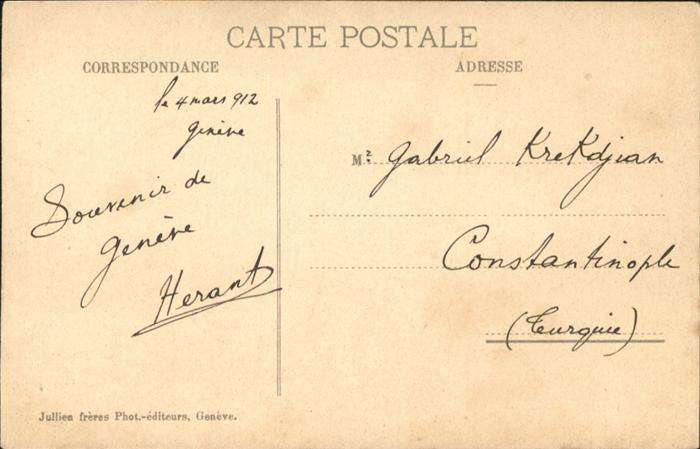 CARTE POSTALE
CORRESPONDANCE
le 4 mars 912
genève
Souvenir de
genève
Herant
Jullien frères Phot.-éditeurs, Genève.
ADRESSE
Mr. Gabriel Krekdjian
Constantinople
(Turquie)